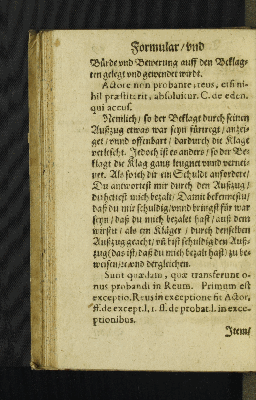 Formular/vnd
Bürde vnd Bewerung auff den Beklag-
ten gelegt vnd gewendet wirdt.
Actore non probante, reus, etsi ni-
hil præstiterit, absoluitur. C. de eden.
qui accus.
Nemlich/ so der Beklagt durch seinen
Außzug etwas war seyn fürtregt/ anzei-
get/ vnnd offenbart/ dardurch die Klagt
verlescht. Jedoch ist es anders/ so der Be-
klagt die Klag gantz leugnet vnnd vernei-
net. Als so ich dir ein Schuldt anfordere/
Du antwortest mir durch den Außzug/
du hettest mich bezalt/ Damit bekennestu/
daß du mir schuldig/ vnnd bringst für war
seyn/ daß du mich bezalet hast/ auß dem
wirstu/ als ein Kläger/ durch denselben
Außzug geacht/ vñ bist schuldig den Auß-
zug/ das ist/ daß du mich bezalt hast/ zu be-
weisen/ vnnd dergleichen.
Sunt quædam, quæ transferunt o-
nus probandi in Reum. Primum est
exceptio. Reus in exceptione fit Actor,
ff. de except. l. 1. ff. de probat. l. in exce-
ptionibus.
Item/